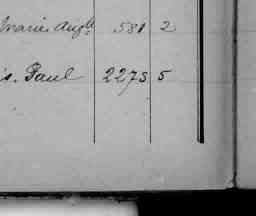 Marie Augte 581 2
is. Paul 2275 5